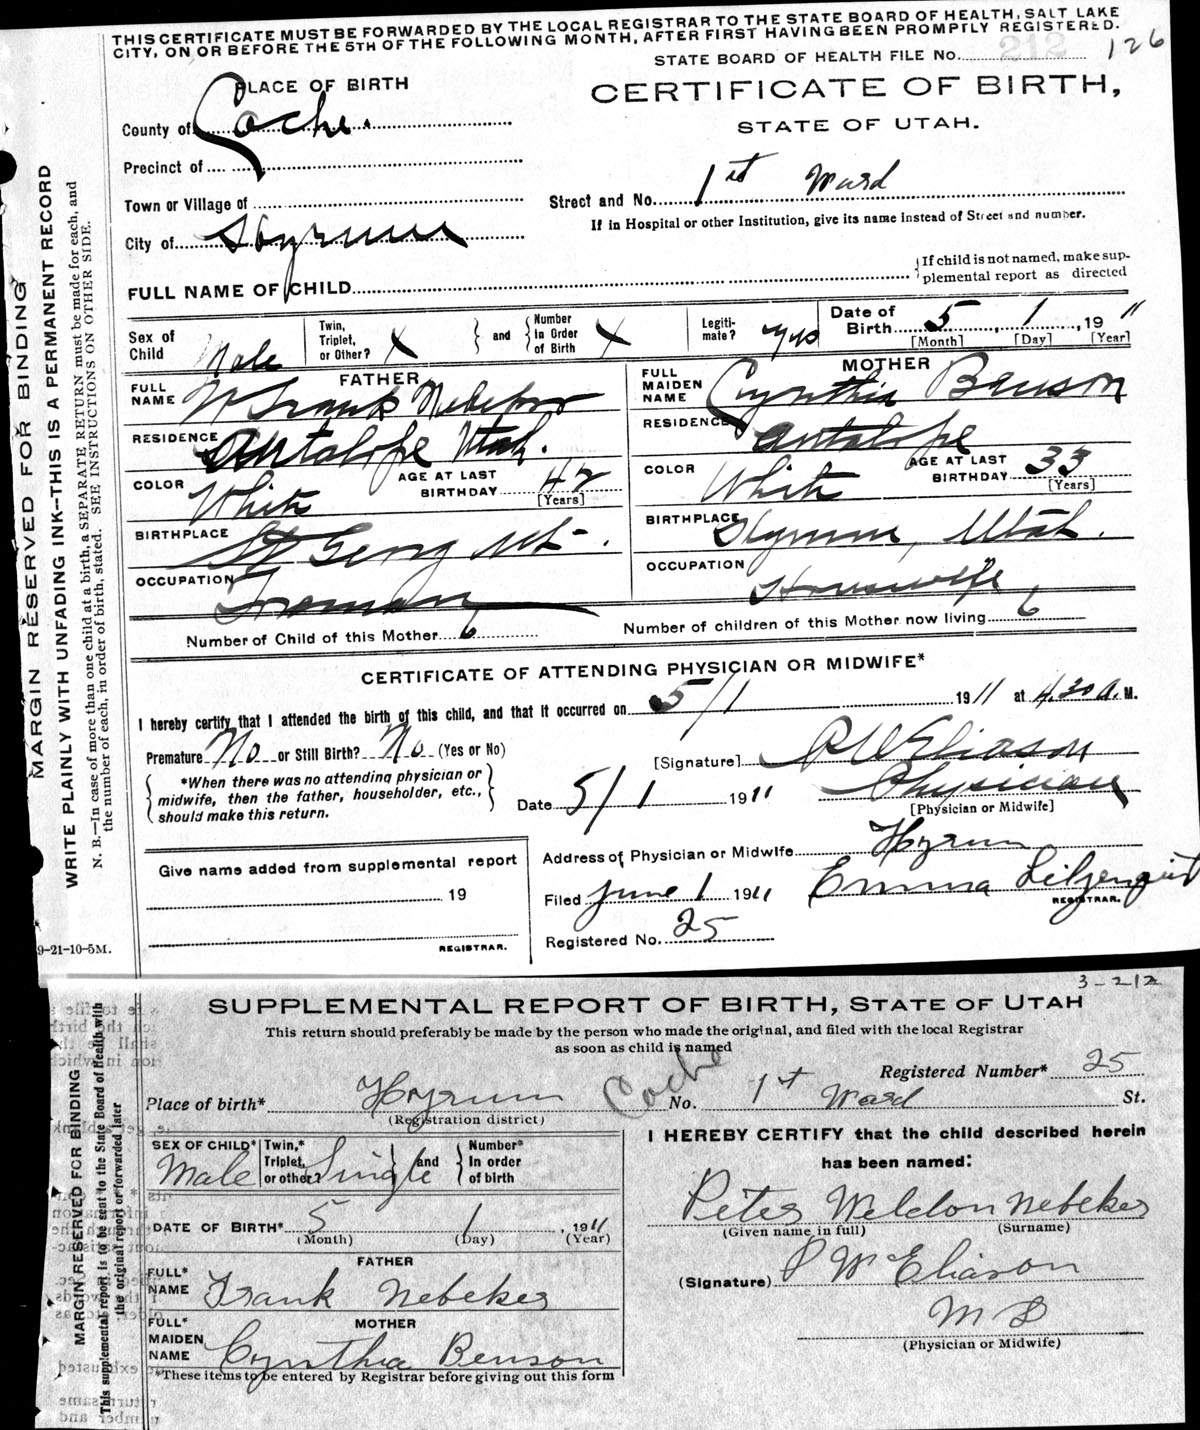 THIS CERTIFICATE MUST BE FORWARDED BY THE LOCAL REGISTRAR TO THE STATE BOARD OF HEALTH, SALT LAKE
CITY, ON OR BEFORE THE 5TH OF THE FOLLOWING MONTH, AFTER FIRST HAVING BEEN PROMPTLY REGISTERED.
STATE BOARD OF HEALTH FILE No. 212 126
PLACE OF BIRTH
CERTIFICATE OF BIRTH,
STATE OF UTAH.
County of Cache.
Precinct of
Town or Village of
Street and No. 1st Ward
If in Hospital or other Institution, give its name instead of Street and number.
City of Hyrum
FULL NAME OF CHILD
If child is not named, make sup-
plemental report as directed
Sex of Child Male
Twin, Triplet, or Other? X
and
Number In Order of Birth X
Legiti-mate? Yes
Date of Birth 5, 1, 1911
[Month] [Day] [Year]
FATHER
FULL NAME W Frank Nebeker
RESIDENCE Antalope Utah.
COLOR White
AGE AT LAST BIRTHDAY 42
[Years]
BIRTHPLACE St Georg Ut.
OCCUPATION
MOTHER
FULL MAIDEN NAME Cynthia Benson
RESIDENCE Antalope
COLOR White
AGE AT LAST BIRTHDAY 33
[Years]
BIRTHPLACE Hyrum, Utah.
OCCUPATION Housewife
Number of Child of this Mother 6
Number of children of this Mother now living 6
CERTIFICATE OF ATTENDING PHYSICIAN OR MIDWIFE*
I hereby certify that I attended the birth of this child, and that it occurred on 5/1 1911 at 4.30 A. M.
Premature No or Still Birth? No (Yes or No)
*When there was no attending physician or
midwife, then the father, householder, etc.,
should make this return.
[Signature] P W Eliason
Physician
[Physician or Midwife]
Date 5/1 1911
Address of Physician or Midwife Hyrum
Filed June 1 1911 Emma Liljenquist
REGISTRAR.
Registered No. 25
Give name added from supplemental report
19
REGISTRAR.
9-21-10-5M.
MARGIN RESERVED FOR BINDING
WRITE PLAINLY WITH UNFADING INK—THIS IS A PERMANENT RECORD
N. B.—In case of more than one child at a birth, a SEPARATE RETURN must be made for each, and
the number of each, in order of birth, stated. SEE INSTRUCTIONS ON OTHER SIDE.
3-212
SUPPLEMENTAL REPORT OF BIRTH, STATE OF UTAH
This return should preferably be made by the person who made the original, and filed with the local Registrar
as soon as child is named
Registered Number* 25
Place of birth* Hyrum Cache No. 1st Ward St.
(Registration district)
SEX OF CHILD* Male
Twin,* Triplet, or other? Single
and
Number* In order of birth
DATE OF BIRTH* 5 1, 1911
(Month) (Day) (Year)
FATHER
FULL* NAME Frank Nebeker
MOTHER
FULL* MAIDEN NAME Cynthia Benson
*These items to be entered by Registrar before giving out this form
I HEREBY CERTIFY that the child described herein
has been named:
Peter Weldon Nebeker
(Given name in full) (Surname)
(Signature) P W Eliason
M D
(Physician or Midwife)
MARGIN RESERVED FOR BINDING
This supplemental report is to be sent to the State Board of Health with
the original report or forwarded later